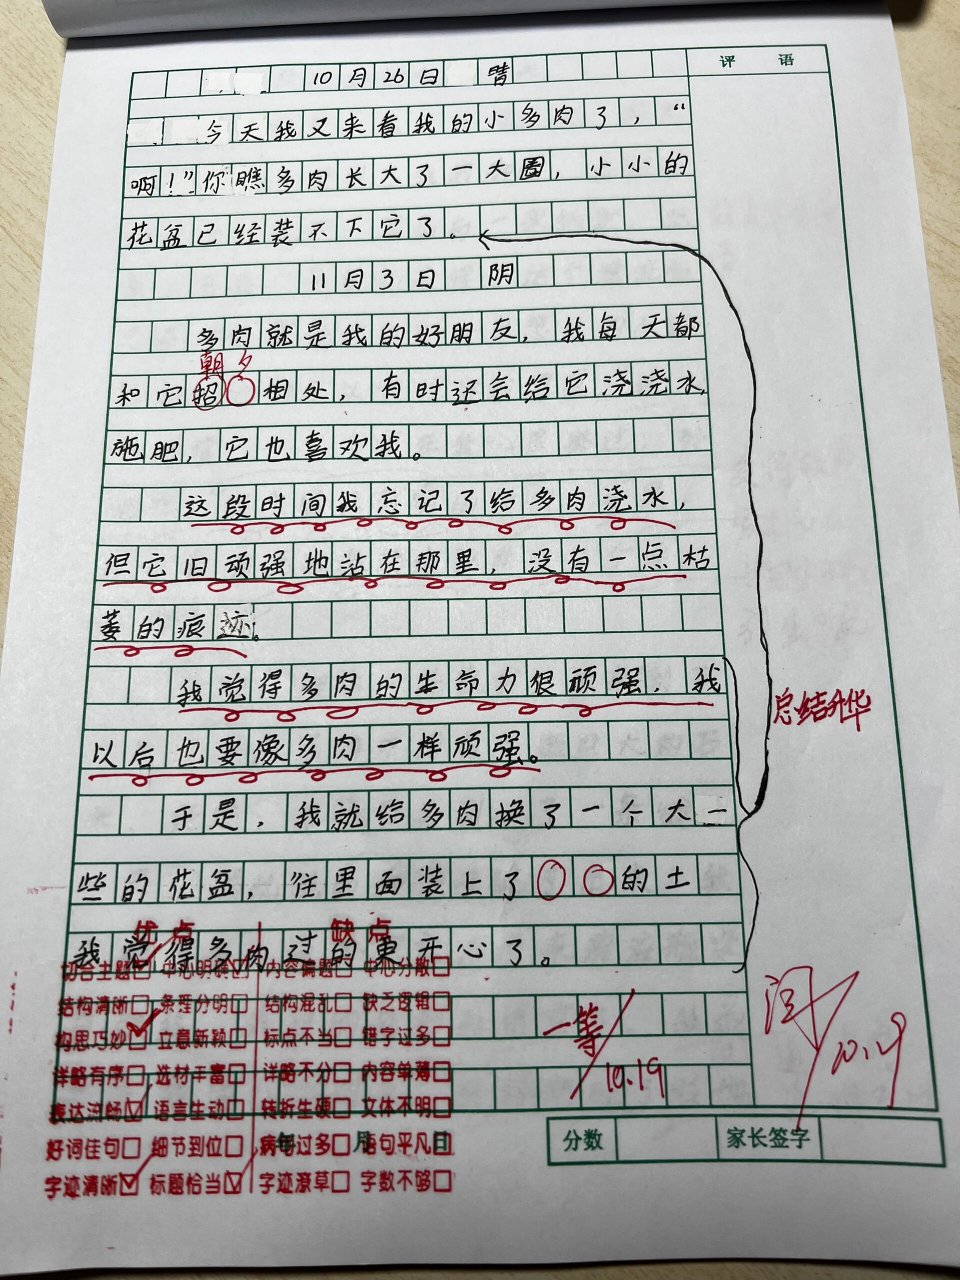 评 语
10月26日 晴
今天我又来看我的小多肉了，“
啊！”你瞧多肉长大了一大圈，小小的
花盆已经装不下它了。
11月3日 阴
多肉就是我的好朋友，我每天都
朝夕
和它招相处，有时还会给它浇浇水，
施肥，它也喜欢我。
这段时间我忘记了给多肉浇水，
但它旧顽强地站在那里，没有一点枯
萎的痕迹。
我觉得多肉的生命力很顽强，我
总结升华
以后也要像多肉一样顽强。
于是，我就给多肉换了一个大一
些的花盆，往里面装上了的土
我觉得多肉过的更开心了。
优点 缺点
切合主题 中心明确 内容偏题 中心分散
结构清晰 条理分明 结构混乱 缺乏逻辑
构思巧妙 立意新颖 标点不当 错字过多
详略有序 选材丰富 详略不分 内容单薄
表达流畅 语言生动 转折生硬 文体不明
好词佳句 细节到位 病句过多 语句平凡
字迹清晰 标题恰当 字迹潦草 字数不够
一等
10.19
10.29
年 月 日
分数 家长签字